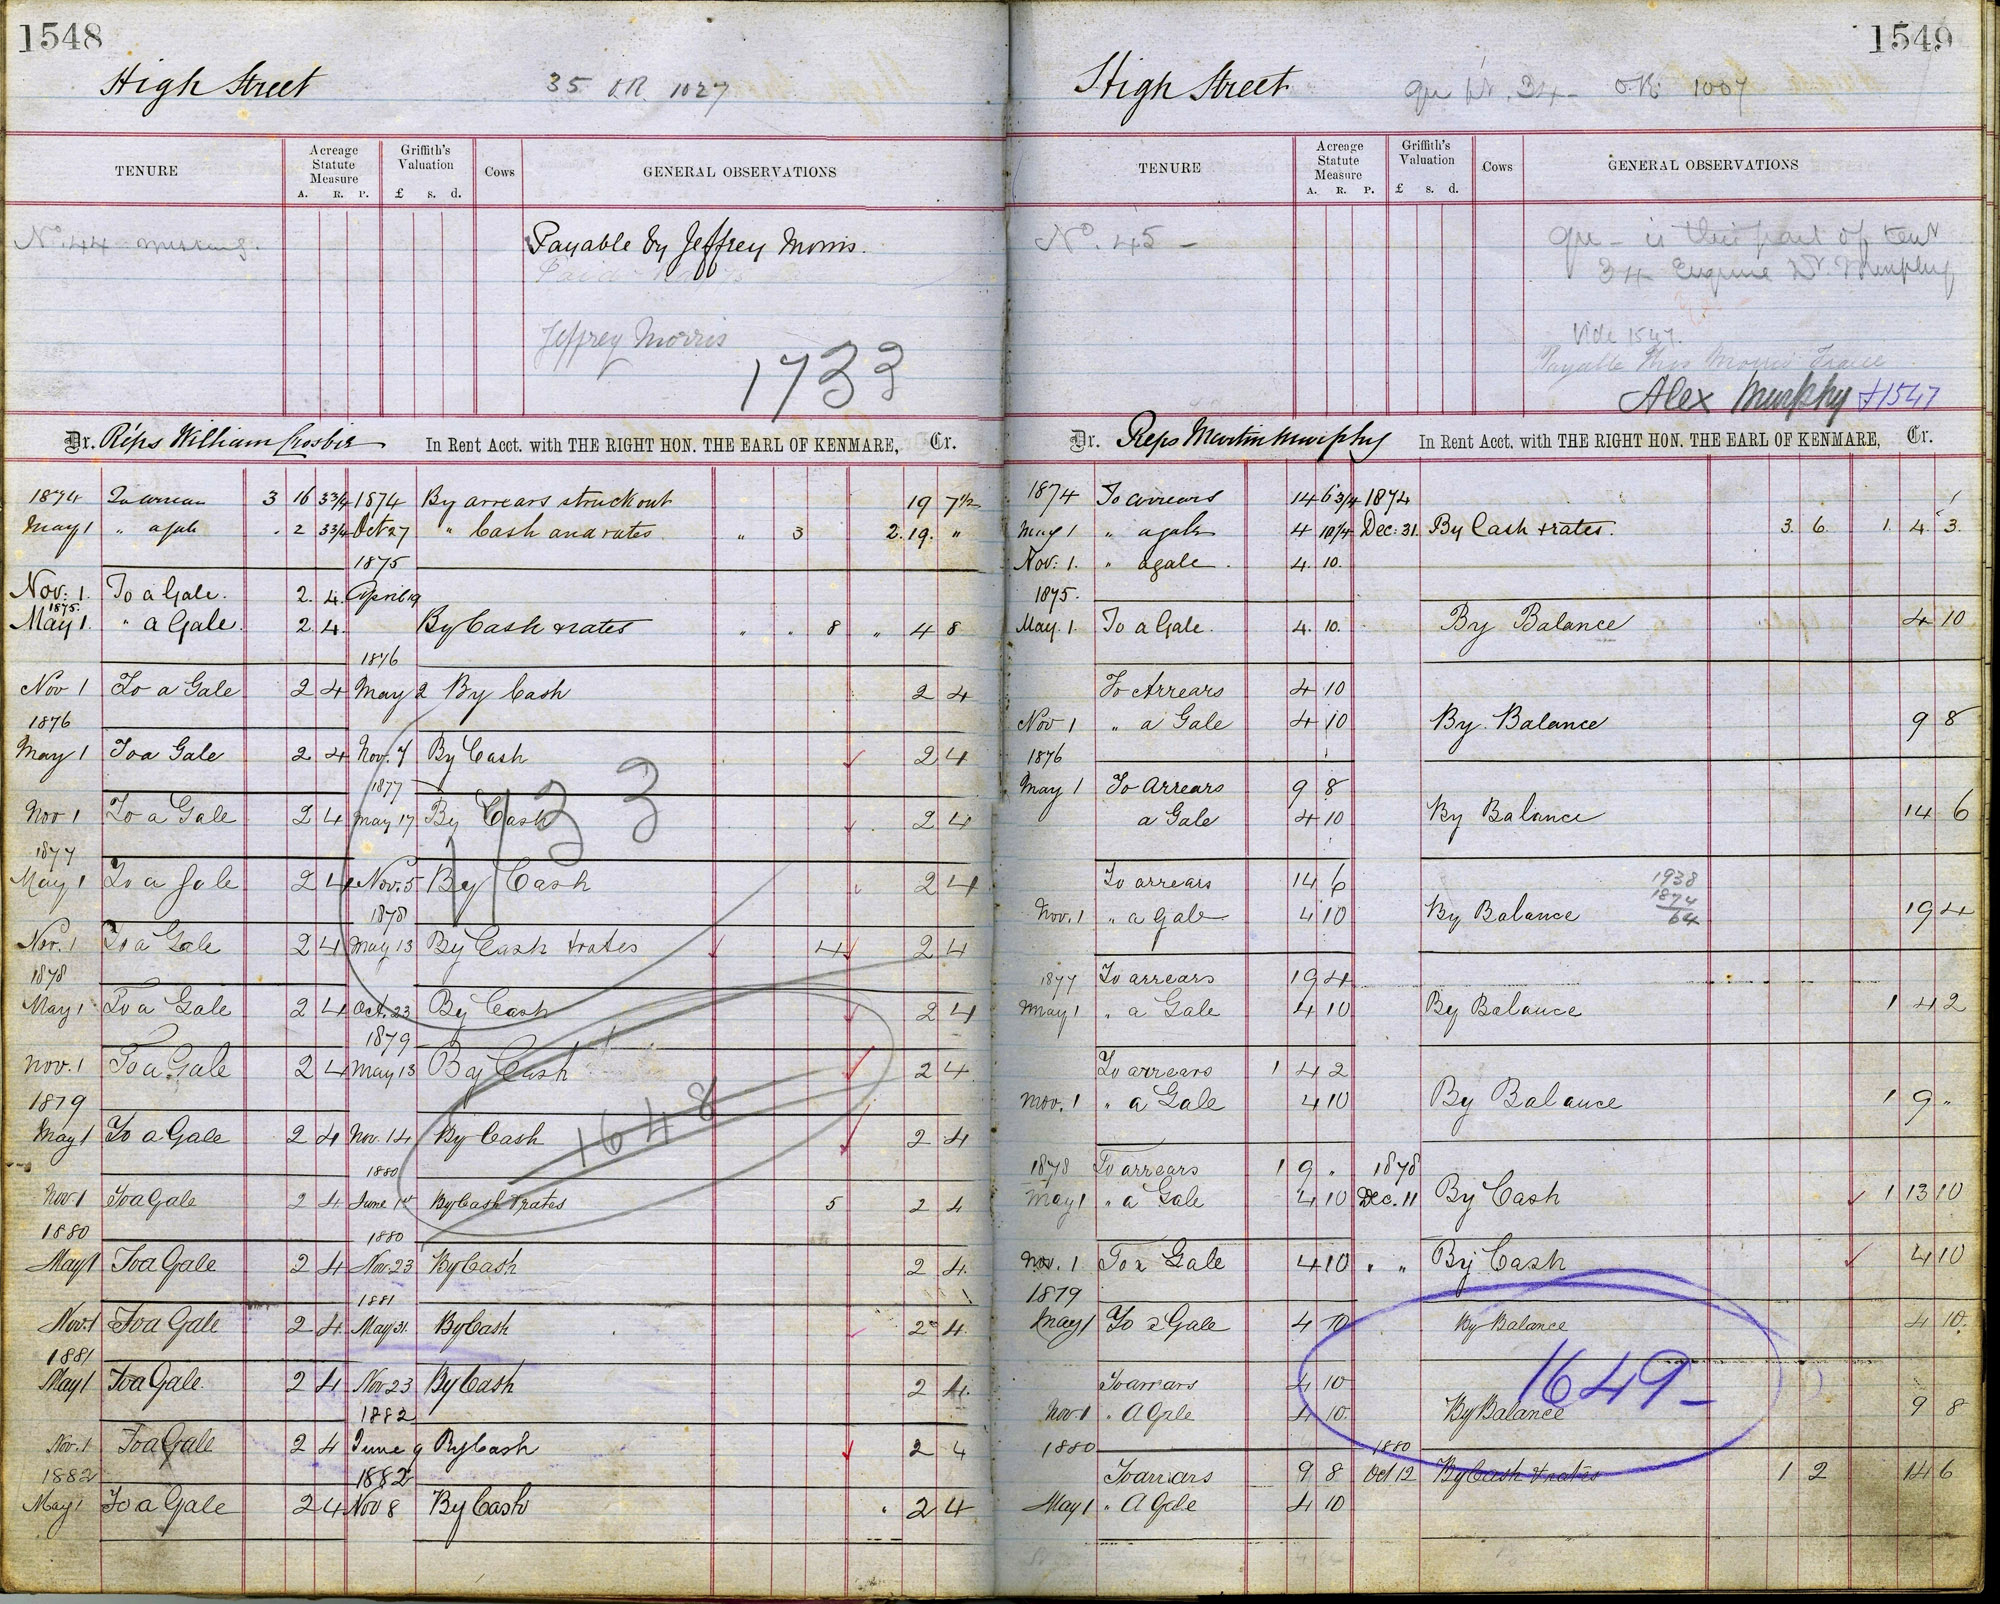 1548
High Street
35 O.R. 1027
TENURE
Acreage Statute Measure
A. R. P.
Griffith's Valuation
£ s. d.
Cows
GENERAL OBSERVATIONS
No. 44 missing.
Payable by Jeffrey Morris.
Jeffrey Morris
1733
Dr. Reps William Crosbie In Rent Acct. with THE RIGHT HON. THE EARL OF KENMARE, Cr.
1874 To arrears 3 16 3 3/4 1874 By arrears struck out 19 7 1/2
May 1 " a gale . 2 3 3/4 Oct 27 " Cash and rates " 3 2. 19. "
1875
Nov: 1. To a Gale. 2. 4. April 19
1875.
May 1. " a Gale. 2 4. By Cash & rates " . 8 " 4 8
1876
Nov 1 To a Gale 2 4 May 2 By Cash 2 4
1876
May 1 To a Gale 2 4 Nov. 7 By Cash 2 4
1877
Nov 1 To a Gale 2 4 May 17 By Cash 2 4
1733
1877
May 1 To a gale 2 4 Nov. 5 By Cash 2 4
1878
Nov. 1 To a Gale 2 4 May 13 By Cash & rates 4 2 4
1878
May 1 To a Gale 2 4 Oct. 23 By Cash 2 4
1879
Nov. 1 To a Gale 2 4 May 13 By Cash 2 4
1879
May 1 To a Gale 2 4 Nov. 14 By Cash 2 4
1648
1880
Nov 1 To a Gale 2 4 June 1st By Cash & rates 5 2 4
1880 1880
May 1 To a Gale 2 4 Nov 23 By Cash 2 4.
1881
Nov. 1 To a Gale 2 4 May 31. By Cash 2 4.
1881
May 1 To a Gale. 2 4 Nov 23 By Cash 2 4.
1882
Nov. 1 To a Gale 2 4 June 9 By Cash 2 4
1882 1882
May 1 To a Gale 2 4 Nov 8 By Cash 2 4
1549
High Street
O.R. 1007
TENURE
Acreage Statute Measure
A. R. P.
Griffith's Valuation
£ s. d.
Cows
GENERAL OBSERVATIONS
No. 45 -
que - is this part of rent
34 Eugene Dr. Murphy
Vide 1547.
Alex Murphy + 1547
Dr. Reps Martin Murphy In Rent Acct. with THE RIGHT HON. THE EARL OF KENMARE, Cr.
1874 To arrears 14 6 3/4 1874
May 1 " a gale 4 10 1/4 Dec: 31. By Cash & rates. 3. 6. 1. 4. 3.
Nov: 1. " a gale. 4. 10.
1875.
May. 1. To a Gale. 4. 10. By Balance 4 10
To Arrears 4 10
Nov 1 " a Gale 4 10 By Balance 9 8
1876
May 1 To Arrears 9 8
a Gale 4 10 By Balance 14 6
To arrears 14 6
1938
1874
64
Nov. 1 " a gale 4 10 By Balance 19 4
1877 To arrears 19 4
May 1 " a Gale 4 10 By Balance 1 4 2
To arrears 1 4 2
Nov. 1 " a Gale 4 10 By Balance 1 9 "
1878 To arrears 1 9 " 1878
May 1 " a Gale 4 10 Dec. 11 By Cash 1 13 10
Nov. 1 To a Gale 4 10 " " By Cash 4 10
1879
May 1 To a Gale 4 10 By Balance 4 10.
1649-
To arrears 4 10
Nov. 1 " A Gale 4 10. By Balance 9 8
1880 1880
To arrears 9 8 Oct 12 By Cash & rates 1 2 14 6
May 1 " A Gale 4 10